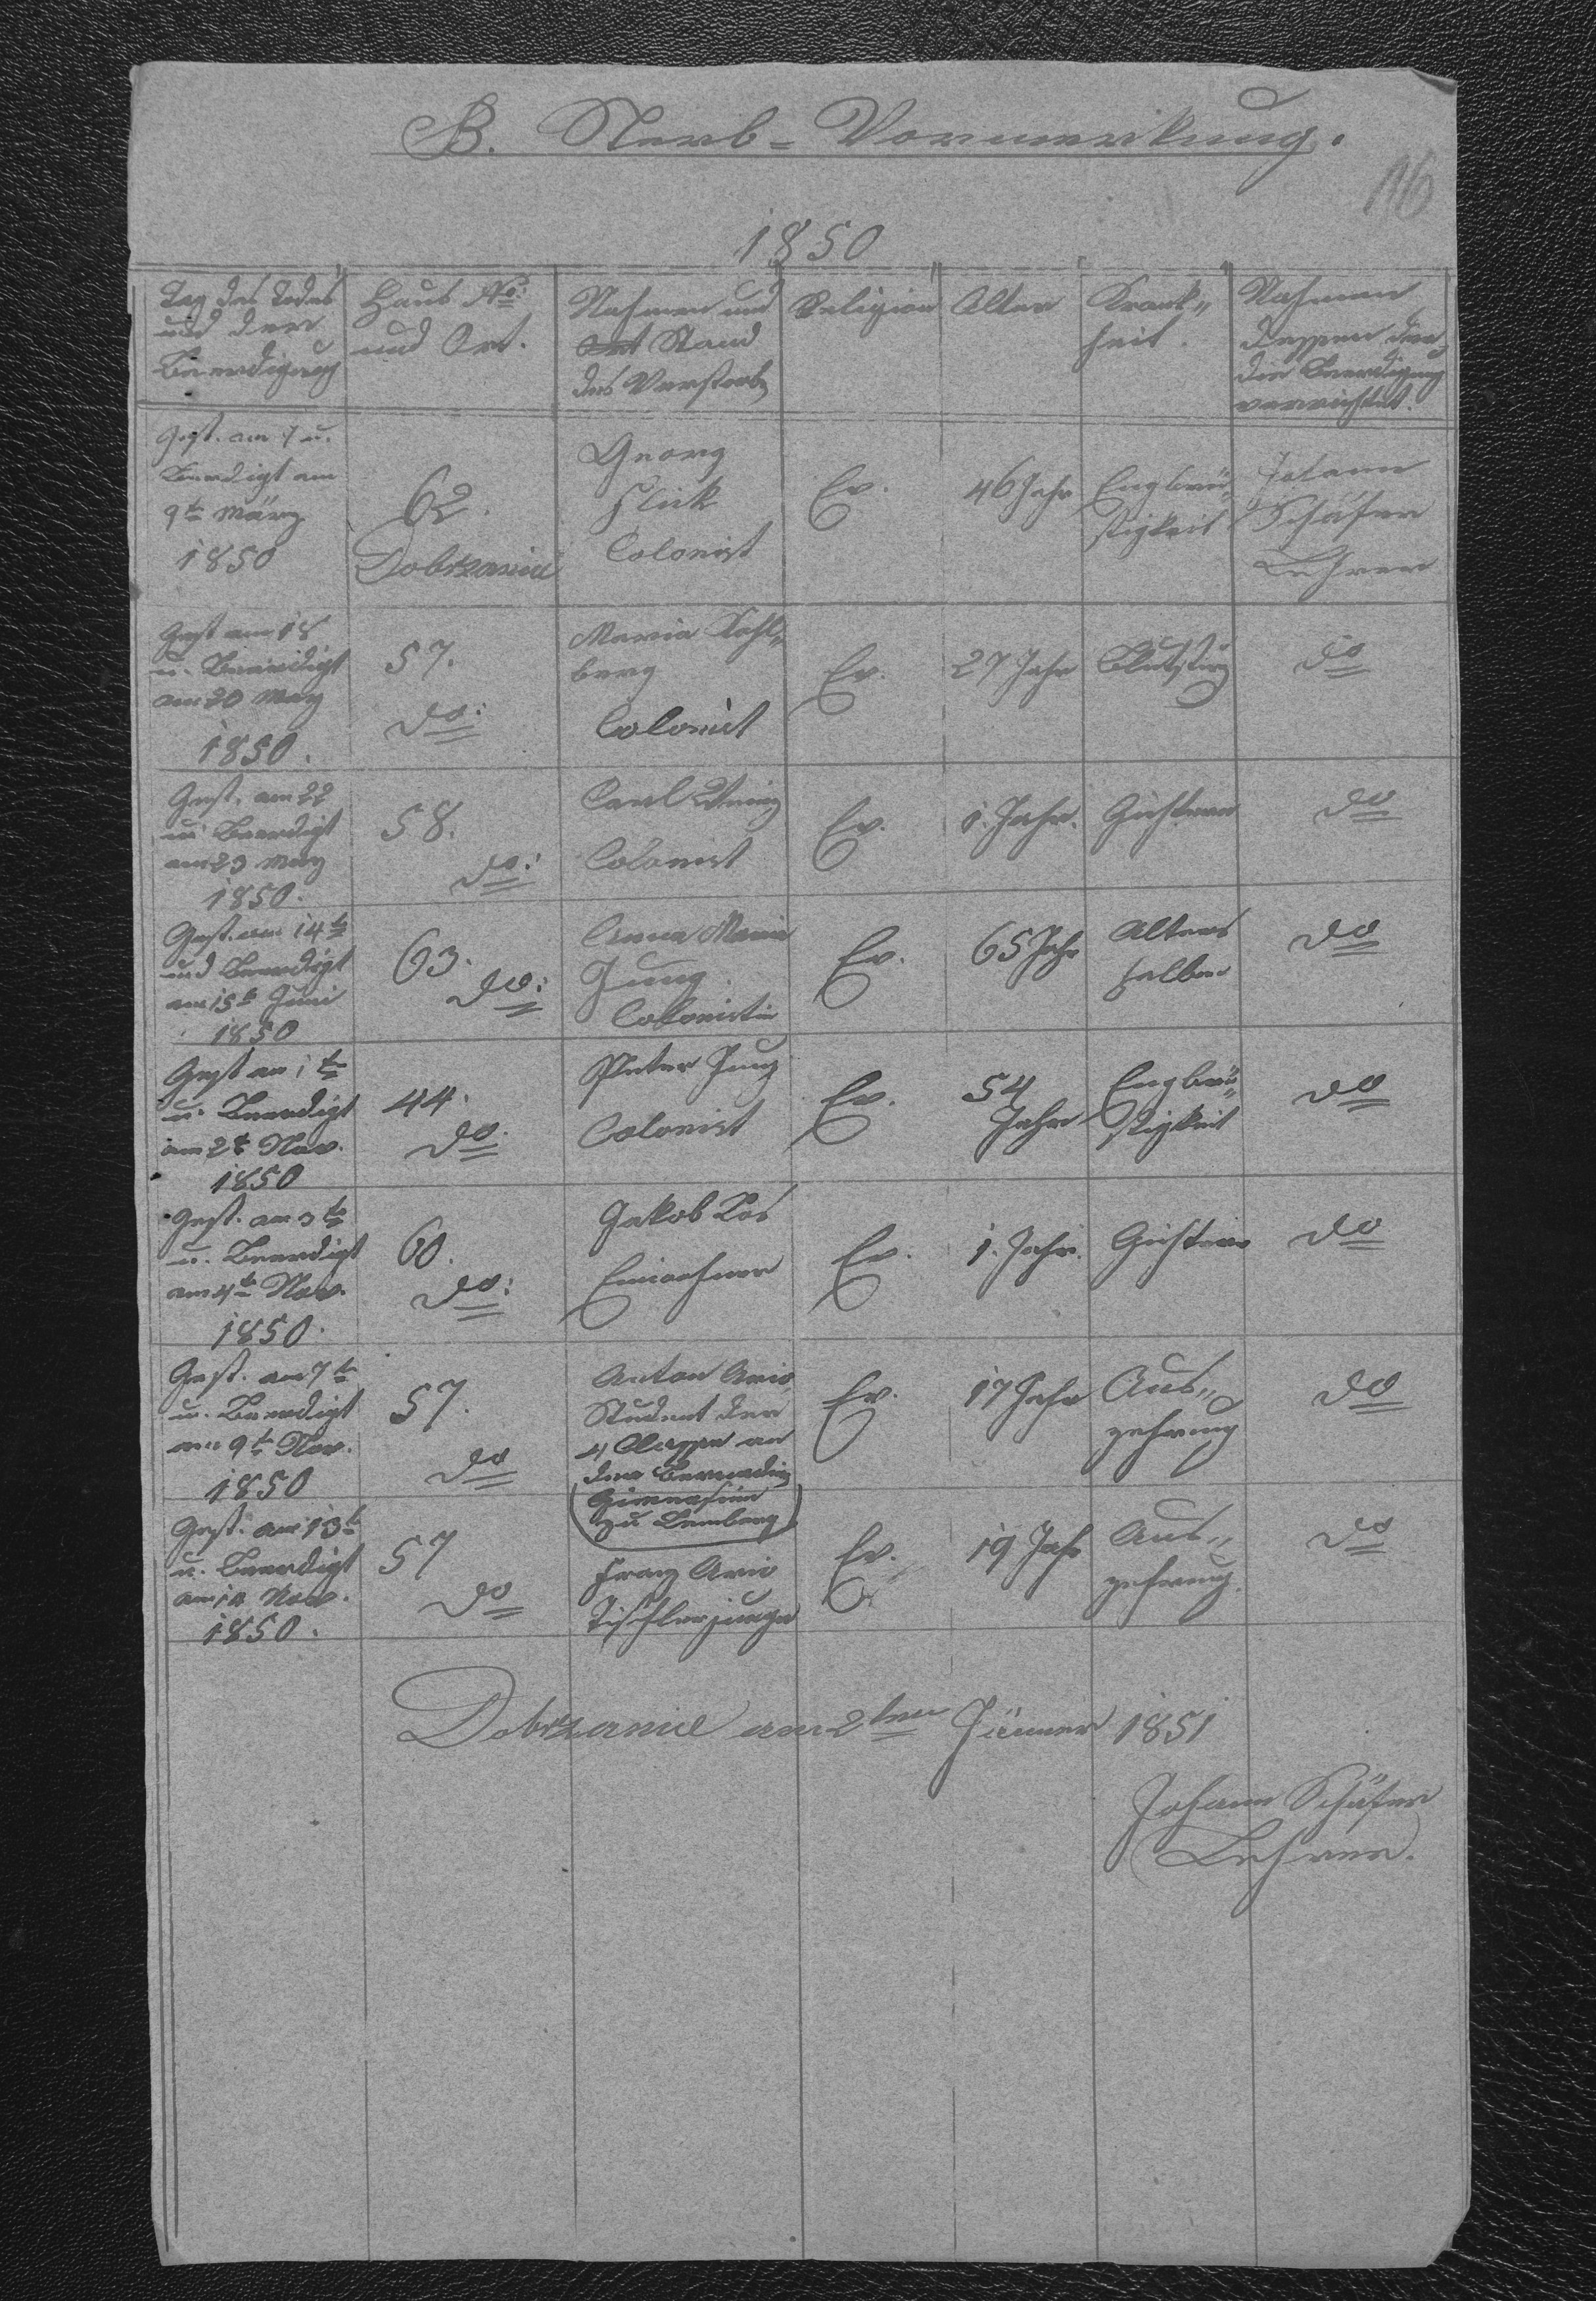 B. Sterb-Vormerkung.
116
1850
Tag des Todes
und der
Beerdigung
Haus No:
und Ort.
Nahmen und
Ort Stand
des Verstorb.
Religion
Alter
Krank„
heit.
Nahmen
dessen der
die Beerdigung
verrichtet.
Gest. am 7 u.
Beerdigt am
9te März
1850
62.
Dobrzanica
Georg
Flick
Colonist
Ev.
46 Jahr
Engbrü„
stigkeit
Johann
Schäfer
Lehrer
Gest am 18
u. Beerdigt
am 20 May
1850.
57.
do:
Maria Kohl„
berg
Colonist
Ev.
27 Jahr
Blutsturz
do
Gest. am 22
u. Beerdigt
am 23 May
1850.
58.
do:
Carl
Colonist
Ev.
1. Jahr.
Gichtern
do
Gest. am 14te
und Beerdigt
am 15te Juni
1850
63.
do:
Anna Maria
Jung.
Colonistin
Ev.
65 Jahr
Alters
halber
do
Gest am 1te
u. Beerdigt
am 2te Nov.
1850
44.
do.
Peter Jung
Colonist
Ev.
54
Jahr
Engbrü„
stigkeit
do
Gest. am 3te
u. Beerdigt
am 4te Nov.
1850.
60.
do:
Jakob Kos
Einwohner
Ev.
1. Jahr.
Gichtern
do
Gest. am 7te
u. Beerdigt
am 9te Nov.
1850
57.
do
Anton Ario,
Student der
4 Classe an
dem
Gimnasium
zu Lemberg
Ev.
17 Jahr
Aus„
zehrung
do
Gest. am 13te
u. Beerdigt
am 14 Nov.
1850.
57
do
Franz Ario
Tischlerjunge
Ev.
19 Jahr
Aus„
zehrung.
do
Dobrzanica am 2ten Jänner 1851
Johann Schäfer
Lehrer.